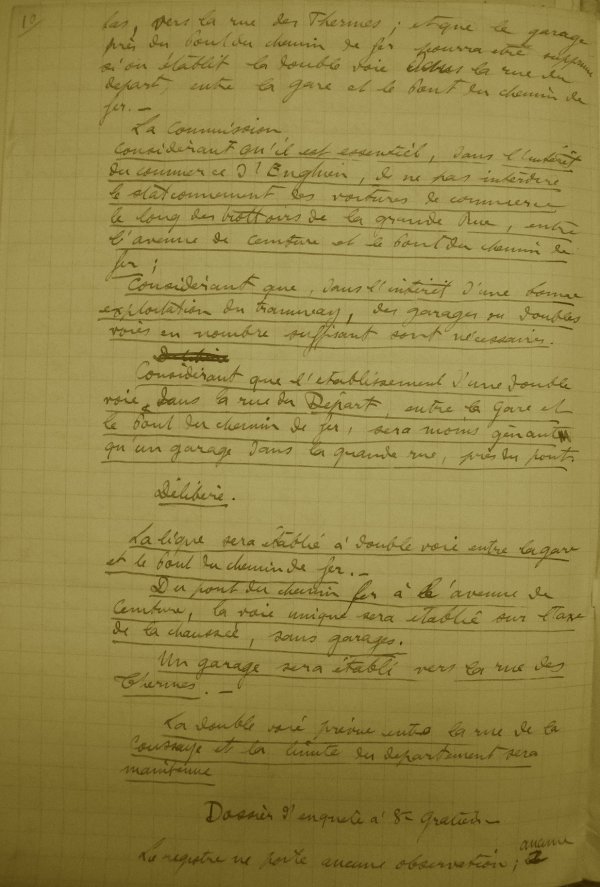 10
bas, vers la rue des Thermes ; et que le garage
près du Pont du chemin de fer pourra être supprimé
si on établit la double voie dans la rue du
départ, entre la gare et le Pont du chemin de
fer. —
La Commission
Considérant qu'il est essentiel, dans l'intérêt
du commerce d'Enghien, de ne pas interdire
le stationnement des voitures de commerce
le long des trottoirs de la grande Rue, entre
l'avenue de Ceinture et le Pont du chemin de
fer ;
Considérant que, dans l'intérêt d'une bonne
exploitation du tramway, des garages ou doubles
voies en nombre suffisant sont nécessaires.
Considérant que l'établissement d'une double
voie, dans la rue du Départ, entre la Gare et
le Pont du chemin de fer, sera moins gênant
qu'un garage dans la grande rue, près du pont.
Délibère.
La ligne sera établie à double voie entre la gare
et le Pont du chemin de fer. —
Du pont du chemin fer à l'avenue de
Ceinture, la voie unique sera établie sur l'axe
de la chaussée, sans garages.
Un garage sera établi vers la rue des
Thermes. —
La double voie prévue entre la rue de la
Coussaye et la limite du département sera
maintenue
Dossier d'enquête à St Gratien —
Le registre ne porte aucune observation ; aucune